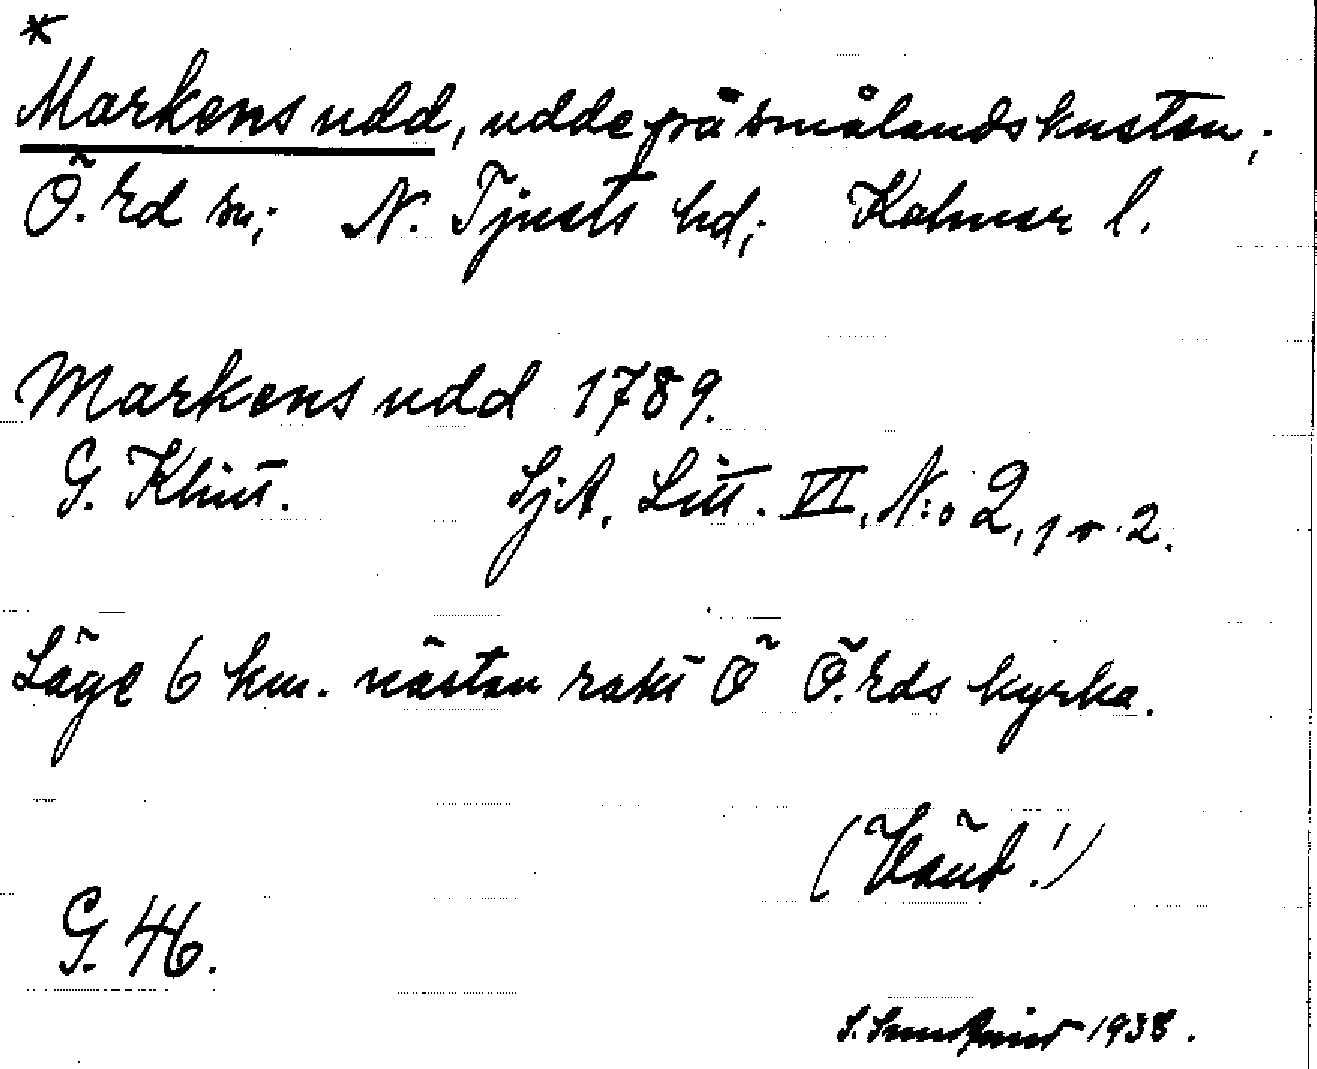 *
Markens udd, udde på smålandskusten;
Ö. Ed sn; N. Tjusts hd; Kalmar l.
Markens udd 1789.
G. Klint. SjA, Litt. VI, N:o 2, 1 o 2.
Läge 6 km. nästan rakt Ö Ö. Eds kyrka.
(Vänd!)
G. 46.
S. 1938.